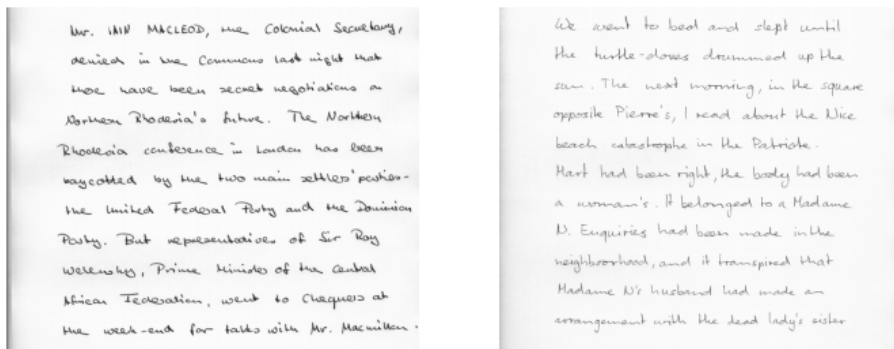 Mr. IAIN MACLEOD, the Colonial Secretary,
denied in the Commons last night that
there have been secret negotiations on
Northern Rhodesia's future. The Northern
Rhodesia conference in London has been
boycotted by the two main settlers' parties-
the United Federal Party and the Dominion
Party. But representatives of Sir Roy
Welensky, Prime Minister of the Central
African Federation, went to Chequers at
the week-end for talks with Mr. Macmillan.
We went to bed and slept until
the turtle-doves drummed up the
sun. The next morning, in the square
opposite Pierre's, I read about the Nice
beach catastrophe in the Patriote.
Mart had been right, the body had been
a woman's. It belonged to a Madame
N. Enquiries had been made in the
neighboorhood, and it transpired that
Madame N's husband had made an
arrangement with the dead lady's sister